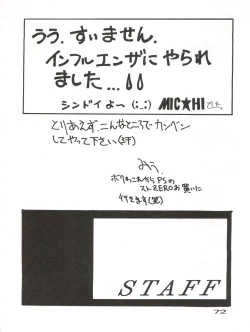 うう．すいません．
インフルエンザに やられ
ました...
シンドイよ～ (;_;) MIC★HI でした。
とりあえず.こんなところで カンベン
してやって下さい(汗)
みう．
ボクはこれから PSの
ストZEROお買いに
行きます(笑)
STAFF
72